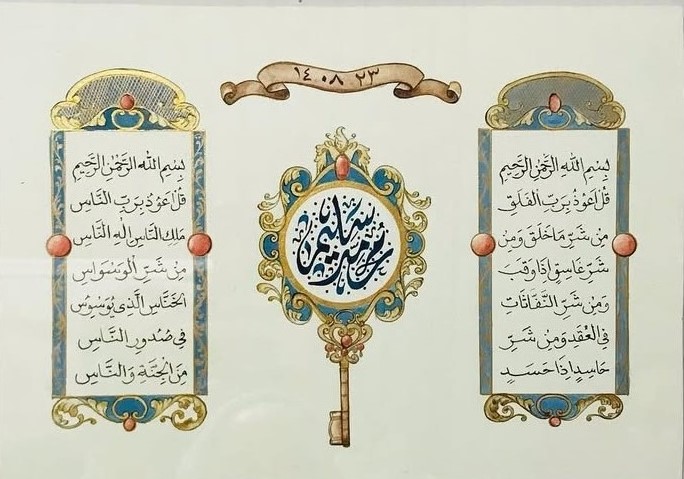 ١٤ ٠٨ ٢٣
بِسْمِ اللهِ الرَّحْمٰنِ الرَّحِيمِ
قُلْ اَعُوذُ بِرَبِّ الْفَلَقِ
مِنْ شَرِّ مَا خَلَقَ وَمِنْ
شَرِّ غَاسِقٍ اِذَا وَقَبَ
وَمِنْ شَرِّ النَّفَّاثَاتِ
فِى الْعُقَدِ وَمِنْ شَرِّ
حَاسِدٍ اِذَا حَسَدَ
بِسْمِ اللهِ الرَّحْمٰنِ الرَّحِيمِ
قُلْ اَعُوذُ بِرَبِّ النَّاسِ
مَلِكِ النَّاسِ اِلٰهِ النَّاسِ
مِنْ شَرِّ الْوَسْوَاسِ
الْخَنَّاسِ الَّذِى يُوَسْوِسُ
فِى صُدُورِ النَّاسِ
مِنَ الْجِنَّةِ وَالنَّاسِ